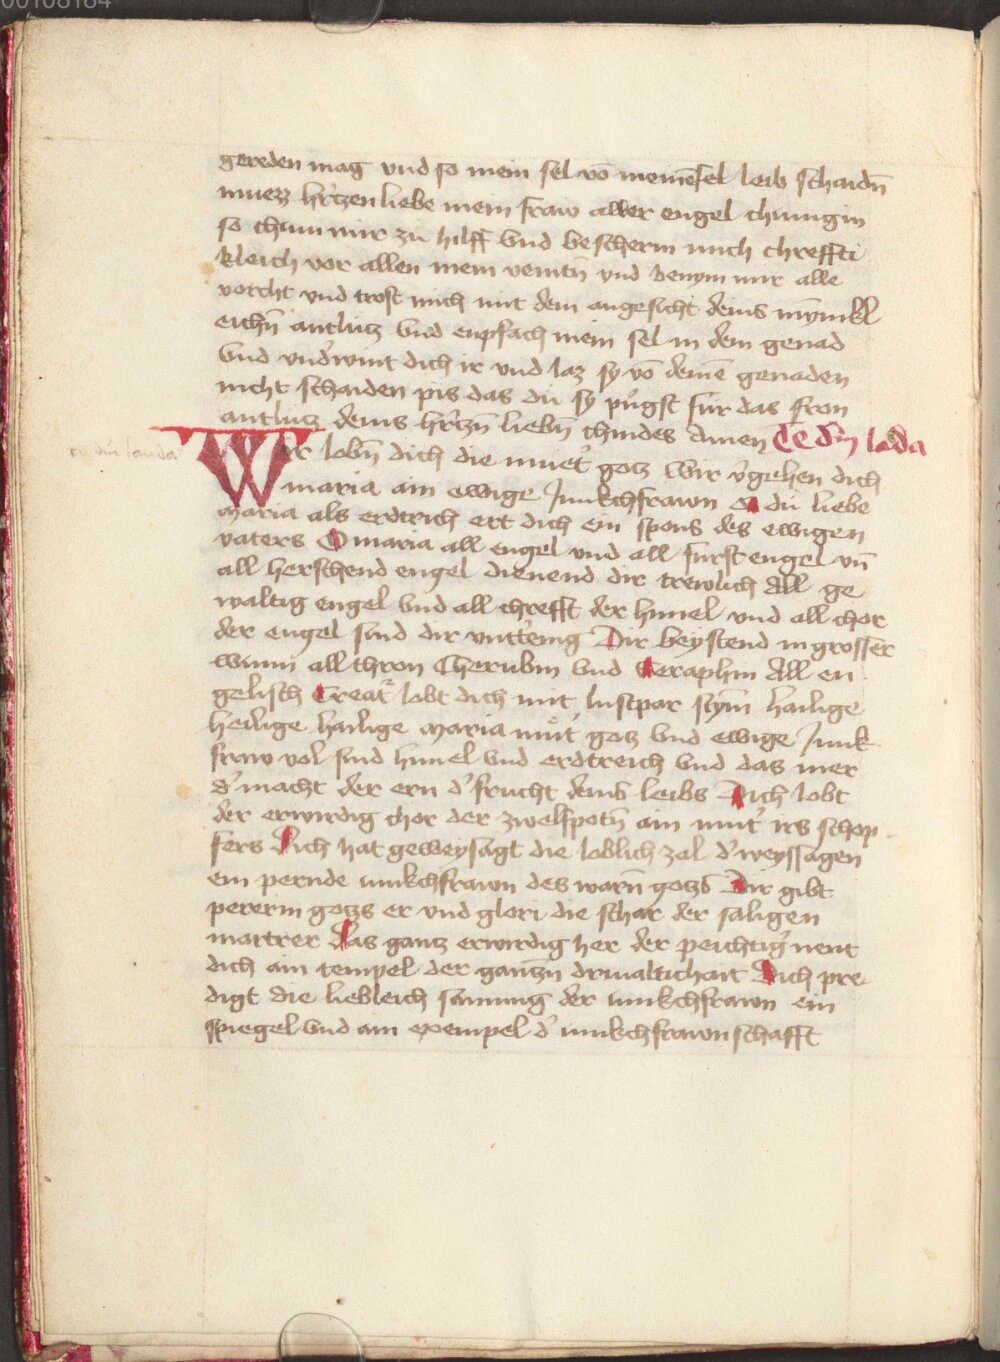 00108184
gereden mag vnd so mein sel vō meinē sel leib schaidn̄
muezz hʼrzen liebe mein fraw aller engel chunigin
so chum mir zu hilff vnd bescherm mich chreffti
kleich vor allen mein veintn̄ vnd benym mir alle
vorcht vnd trost mich mit dem angesicht deins mȳnikl
eichn̄ antlutz vnd enpfach mein sel in dem genad
vnd vndʼwint dich ir vnd laz sy vō deinē genaden
nicht schaiden pis das du sy pringst fur das fron
antlutz deins hʼrczn̄ liebn̄ chindes Amen Te dm̄ lada
te dm̄ lauda
Wir lobn̄ dich die muetʼ gotz Wir vʼgehen dich
maria ain ewige Junkchfrawn O du liebe
maria als erdtrich ert dich ein spons des ewigen
vaters O maria all engel vnd all furstengel vn̄
all herschend engel dienend dir trewlich All ge
waltig engel vnd all chrefft der himel vnd all chor
der engel sind dir vnttʼenig Dir beystend in grosser
wunn all thron Cherubin vnd Seraphin All en
gelisch Creatʼ lobt dich mit lustpar stym̄ hailige
heilige hailige maria mutʼ gotz vnd ewige Junk
fraw vol sind himel vnd erdtreich vnd das mer
dʼ macht der ern dʼ frucht deins leibs Dich lobt
der erwirdig chor der zwelfpotn̄ ain mutʼ irs schop
fers Dich hat geweysagt die loblich zal dʼ weyssagen
ein pernde iunkchfrawn des warn̄ gotzs Dir gibt
pererin gotzs er vnd glori die schar der saligen
martrer Das gantz erwirdig her der peichtigʼ nent
dich ain tempel der gantzn̄ driualtichait Dich pre
digt die liebleich samung der iunkchfrawn ein
spiegel vnd ain exempel dʼ iunkchfrawnschafft